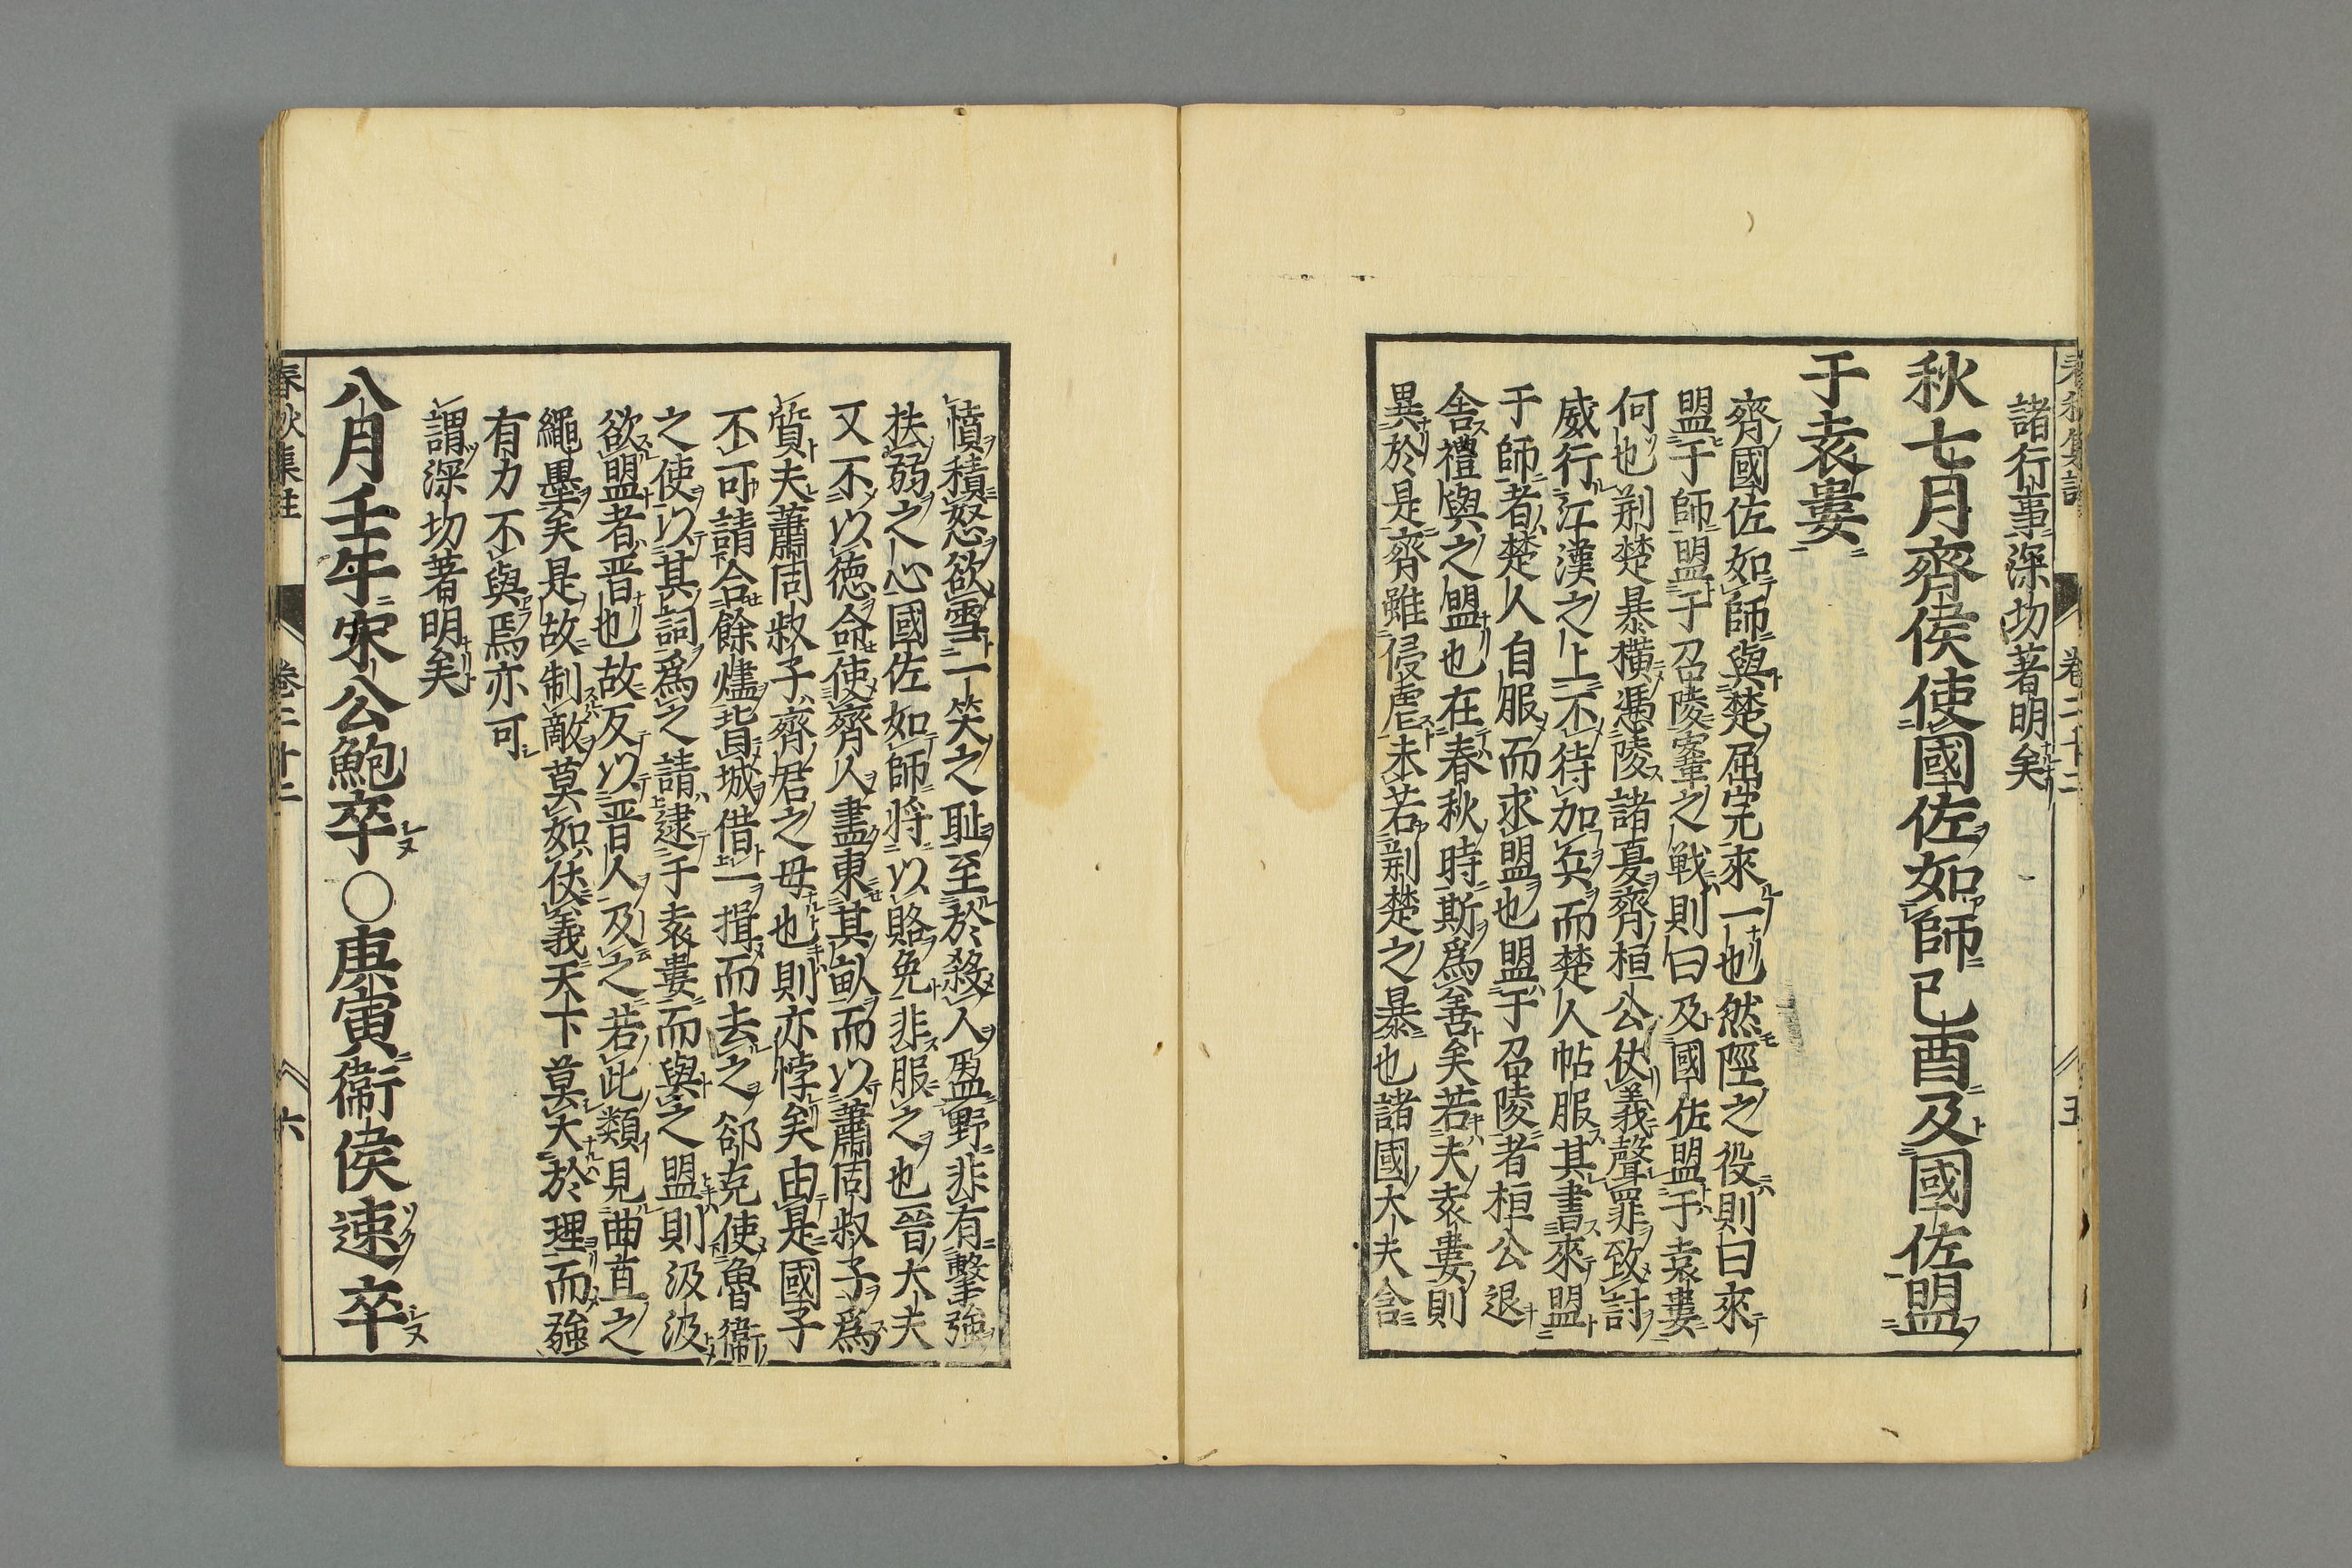 諸行事深切著明矣
秋七月齊侯使國佐如師己酉及國佐盟
于袁婁
齊國佐如師與楚屈完來一也然陘之役則曰來
盟于師盟于召陵鞌之戰則曰及國佐盟于袁婁
何也荆楚暴橫憑陵諸夏齊桓公仗義聲罪致討
威行江漢之上不待加兵而楚人帖服其書來盟
于師者楚人自服而求盟也盟于召陵者桓公退
舎禮與之盟也在春秋時斯爲善矣若夫袁婁則
異於是齊雖侵虐未若荆楚之暴也諸國大夫含
憤積怒欲雪一笑之耻至於殺人盈野非有擊強
扶弱之心國佐如師將以賂免非服之也晉大夫
又不以德命使齊人盡東其畝而以蕭同叔子爲
質夫蕭同叔子齊君之母也則亦悖矣由是國子
不可請合餘燼背城借一揖而去之郤克使魯衞
之使以其詞爲之請逮于袁婁而與之盟則汲汲
欲盟者晉也故反以晉人及之若此類見曲直之
繩墨矣是故制敵莫如仗義天下莫大於理而強
有力不與焉亦可
謂深切著明矣
八月壬午宋公鮑卒○庚寅衞侯速卒
春秋集註 卷二十二 六